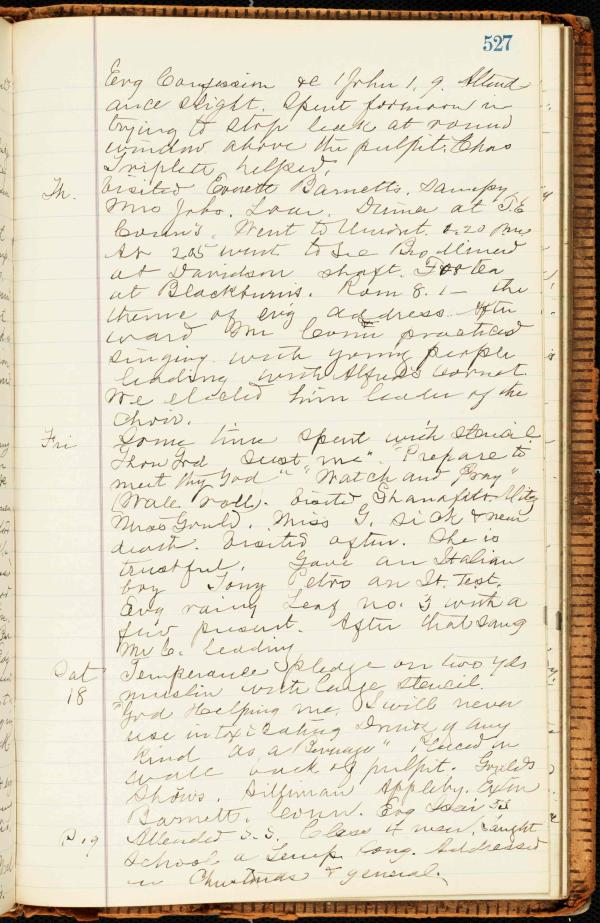 527
Evg Confession &c 1 John 1, 9. Attend
ance slight. Spent forenoon in
trying to stop leak at round
window above the pulpit. Chas
Triplett helped.
Th. Visited Everett Barnetts.
Mrs Dinner at T.E
Conn's. Went to 
At 2.05 went to see Bro
at Davidson shaft. For tea
at Blackburn's. Rom 8.1 - the
theme of evg address. After
ward Mr Conn practiced
singing with young people
leading with Alfred's cornet.
We elected him leader of the
choir.
Fri Some time spent with stencil
Thou God Seest me". "Prepare to
meet thy God" "Watch and Pray"
(Wall roll). Visited
Gould. Miss G. sick & near
death. Visited often. She is
trustful. Gave an Italian
boy Tony Petro an It. Test.
Evg rainy Leaf no. 3 with a
few present. After that sang
Mr C. leading
Sat Temperance pledge on two yds
18 muslin with large stencil.
"God Helping me, I will never
use intoxicating Drinks of any
kind as a Beverage", Placed on
wall back of pulpit.
Shows. Silliman Appleby.
Barnett. Conn. Evg
S. 19 Attended S.S. Class 4 men, taught
school a Temp. song. Addressed
on Christmas & general.